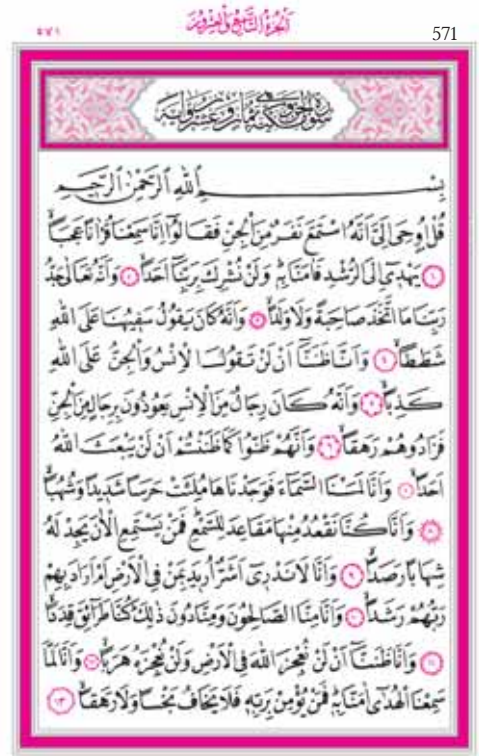 ٥٧١ اَلْجُزْءُ التَّاسِعُ وَالْعِشْرُونَ 571
سُورَةُ الْجِنِّ مَكِّيَّةٌ وَهِيَ ثَمَانٍ وَعِشْرُونَ اٰيَةً
بِسْمِ اللّٰهِ الرَّحْمٰنِ الرَّحِيمِ
قُلْ اُو۫حِيَ اِلَيَّ اَنَّهُ اسْتَمَعَ نَفَرٌ مِنَ الْجِنِّ فَقَالُٓوا اِنَّا سَمِعْنَا قُرْاٰنًا عَجَبًاۙ
﴿١﴾ يَهْدِٓي اِلَى الرُّشْدِ فَاٰمَنَّا بِه۪ۜ وَلَنْ نُشْرِكَ بِرَبِّنَٓا اَحَدًاۙ ﴿٢﴾ وَاَنَّهُ تَعَالٰى جَدُّ
رَبِّنَا مَا اتَّخَذَ صَاحِبَةً وَلَا وَلَدًاۙ ﴿٣﴾ وَاَنَّهُ كَانَ يَقُولُ سَفِيهُنَا عَلَى اللّٰهِ
شَطَطًاۙ ﴿٤﴾ وَاَنَّا ظَنَنَّٓا اَنْ لَنْ تَقُولَ الْاِنْسُ وَالْجِنُّ عَلَى اللّٰهِ
كَذِبًاۙ ﴿٥﴾ وَاَنَّهُ كَانَ رِجَالٌ مِنَ الْاِنْسِ يَعُوذُونَ بِرِجَالٍ مِنَ الْجِنِّ
فَزَادُوهُمْ رَهَقًاۙ ﴿٦﴾ وَاَنَّهُمْ ظَنُّوا كَمَا ظَنَنْتُمْ اَنْ لَنْ يَبْعَثَ اللّٰهُ
اَحَدًاۙ ﴿٧﴾ وَاَنَّا لَمَسْنَا السَّمَٓاءَ فَوَجَدْنَاهَا مُلِئَتْ حَرَسًا شَدِيدًا وَشُهُبًاۙ
﴿٨﴾ وَاَنَّا كُنَّا نَقْعُدُ مِنْهَا مَقَاعِدَ لِلسَّمْعِۜ فَمَنْ يَسْتَمِعِ الْاٰنَ يَجِدْ لَهُ
شِهَابًا رَصَدًاۙ ﴿٩﴾ وَاَنَّا لَا نَدْرِٓي اَشَرٌّ اُرِيدَ بِمَنْ فِي الْاَرْضِ اَمْ اَرَادَ بِهِمْ
رَبُّهُمْ رَشَدًاۙ ﴿١٠﴾ وَاَنَّا مِنَّا الصَّالِحُونَ وَمِنَّا دُونَ ذٰلِكَۜ كُنَّا طَرَٓائِقَ قِدَدًاۙ
﴿١١﴾ وَاَنَّا ظَنَنَّٓا اَنْ لَنْ نُعْجِزَ اللّٰهَ فِي الْاَرْضِ وَلَنْ نُعْجِزَهُ هَرَبًاۙ ﴿١٢﴾ وَاَنَّا لَمَّا
سَمِعْنَا الْهُدٰٓى اٰمَنَّا بِه۪ۜ فَمَنْ يُؤْمِنْ بِرَبِّه۪ فَلَا يَخَافُ بَخْسًا وَلَا رَهَقًاۙ ﴿١٣﴾